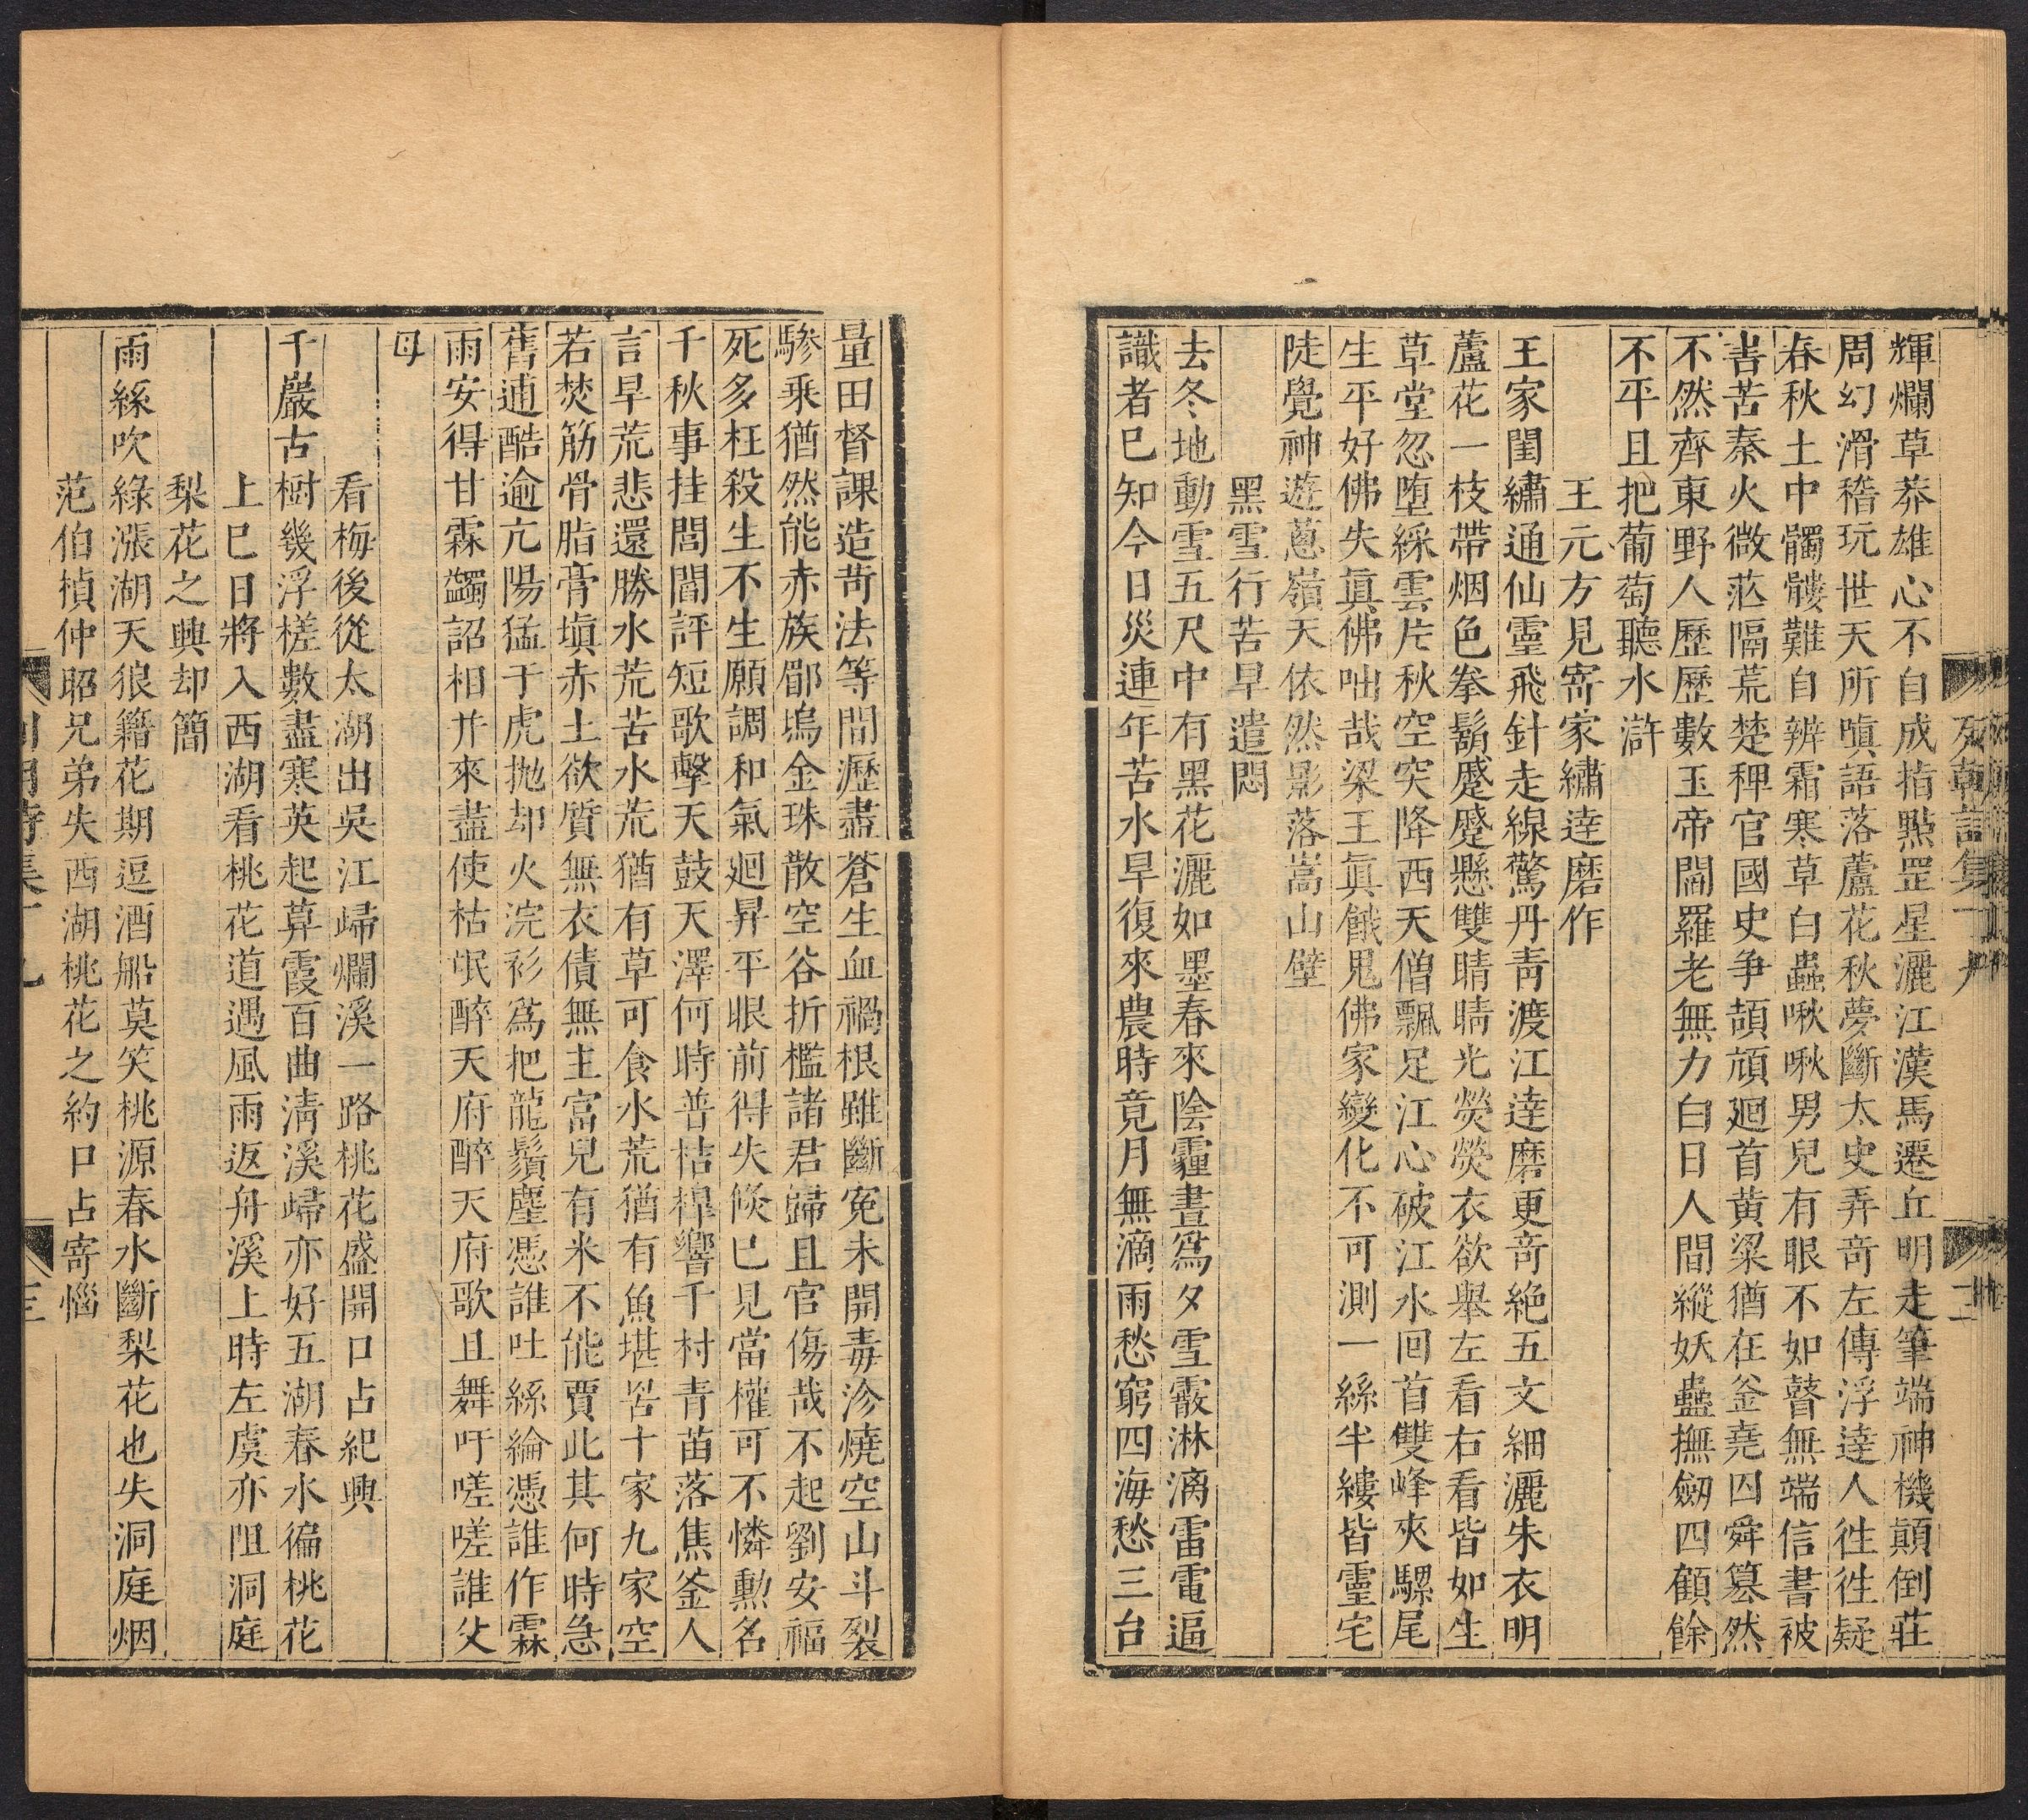 輝爛草莽雄心不自成指點罡星灑江漢馬遷丘明走筆端神機顛倒莊
周幻滑稽玩世天所嗔語落蘆花秋夢斷太史弄奇左傳浮達人往往疑
春秋土中髑髏難自辨霜寒草白蟲啾啾男兒有眼不如瞽無端信書被
書苦秦火微茫隔荒楚稗官國史爭頡頏廻首黄粱猶在釜堯囚舜篡然
不然齊東野人歷歷數玉帝閻羅老無力白日人間縱妖蠱撫劒四顧餘
不平且把葡萄聽水滸
王元方見寄家繡達磨作
王家閨繡通仙靈飛針走線驚丹青渡江達磨更奇絶五文細灑朱衣明
蘆花一枝帶烟色拳鬍蹙蹙懸雙睛睛光熒熒衣欲舉左看右看皆如生
草堂忽堕綵雲片秋空突降西天僧飄足江心破江水回首雙峰夾騾尾
生平好佛失眞佛咄哉梁王眞餓鬼佛家變化不可測一絲半縷皆靈宅
陡覺神遊蔥嶺天依然影落嵩山壁
黑雪行苦旱遣悶
去冬地動雪五尺中有黑花灑如墨春來陰霾晝爲夕雪霰淋漓雷電逼
識者已知今日災連年苦水旱復來農時竟月無滴雨愁窮四海愁三台
量田督課造苛法等間瀝盡蒼生血禍根雖斷寃未開毒沴燒空山斗裂
驂乘猶然能赤族郿塢金珠散空谷折檻諸君歸且官傷哉不起劉安福
死多枉殺生不生願調和氣廻昇平眼前得失倏已見當權可不憐勲名
千秋事挂閭閻評短歌擊天鼓天澤何時普桔槹響千村青苗落焦釜人
言旱荒悲還勝水荒苦水荒猶有草可食水荒猶有魚堪罟十家九家空
若焚筋骨脂膏塡赤土欲質無衣債無主富兒有米不能賈此其何時急
舊逋酷逾亢陽猛于虎抛却火浣衫爲把龍鬚塵憑誰吐絲綸憑誰作霖
雨安得甘霖蠲詔相并來盡使枯氓醉天府醉天府歌且舞吁嗟嗟誰父
母
看梅後從太湖出吳江歸爛溪一路桃花盛開口占紀興
千巖古樹幾浮槎數盡寒英起算霞百曲淸溪歸亦好五湖春水徧桃花
上巳日將入西湖看桃花道遇風雨返舟溪上時左虞亦阻洞庭
梨花之興却簡
雨絲吹綠漲湖天狼籍花期逗酒船莫笑桃源春水斷梨花也失洞庭烟
范伯楨仲昭兄弟失西湖桃花之約口占寄惱